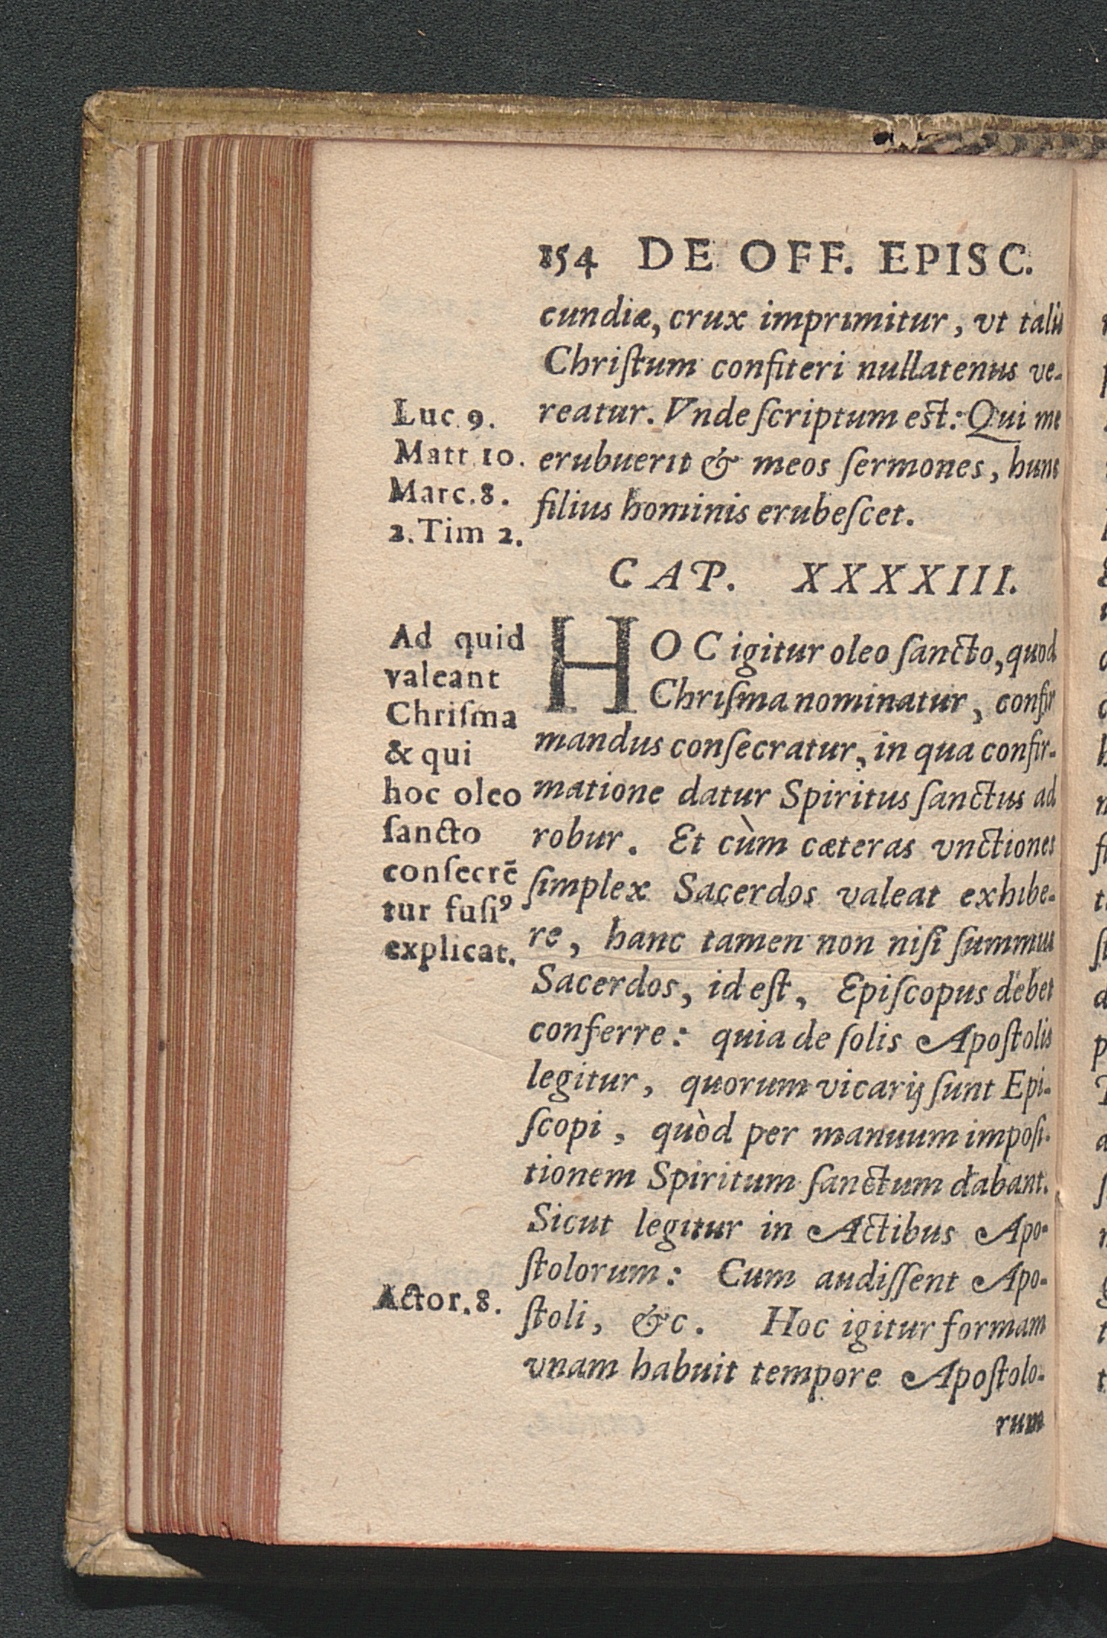 154 DE OFF. EPISC.
cundiæ, crux imprimitur, vt talis
Chriſtum confiteri nullatenus ve-
reatur. Vnde ſcriptum eſt: Qui me
erubuerit & meos ſermones, hunc
filius hominis erubeſcet.
Luc. 9.
Matt. 10.
Marc. 8.
2. Tim 2.
CAP. XXXXIII.
HOC igitur oleo ſancto, quod
Chriſma nominatur, confir
mandus conſecratur, in qua confir-
matione datur Spiritus ſanctus ad
robur. Et cùm cæteras vnctiones
ſimplex Sacerdos valeat exhibe-
re, hanc tamen non niſi ſummus
Sacerdos, id eſt, Epiſcopus debet
conferre: quia de ſolis Apoſtolis
legitur, quorum vicarij ſunt Epi-
ſcopi, quòd per manuum impoſi-
tionem Spiritum ſanctum dabant.
Sicut legitur in Actibus Apo-
ſtolorum: Cum audiſſent Apo-
ſtoli, &c. Hoc igitur formam
vnam habuit tempore Apoſtolo-
rum
Ad quid
valeant
Chriſma
& qui
hoc oleo
ſancto
conſecrē
tur fuſiꝰ
explicat.
Actor. 8.